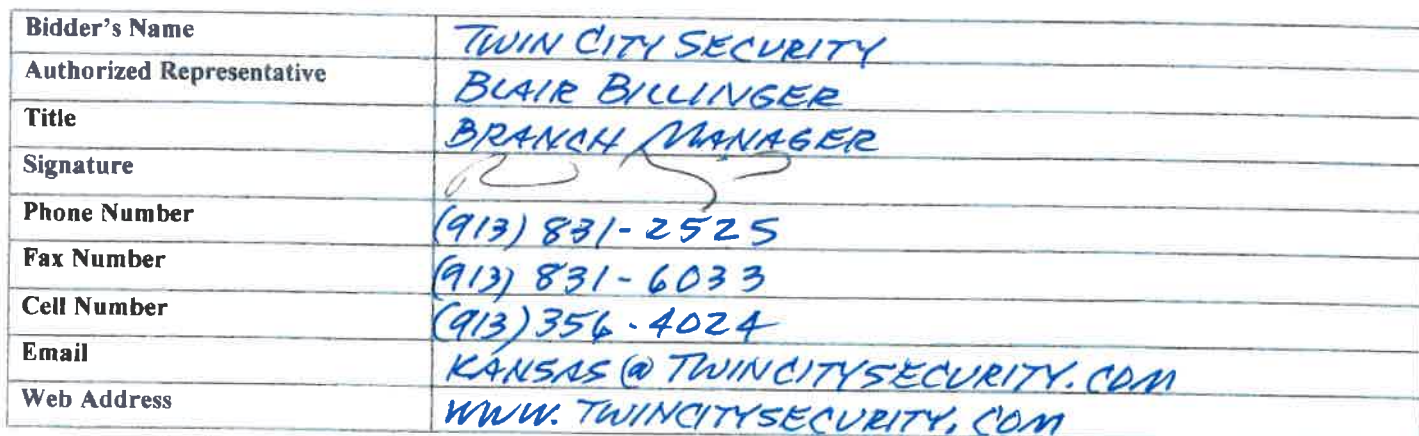 Bidder's Name TWIN CITY SECURITY
Authorized Representative BLAIR BILLINGER
Title BRANCH MANAGER
Signature
Phone Number (913) 831-2525
Fax Number (913) 831-6033
Cell Number (913) 356-4024
Email KANSAS@TWINCITYSECURITY.COM
Web Address WWW.TWINCITYSECURITY.COM